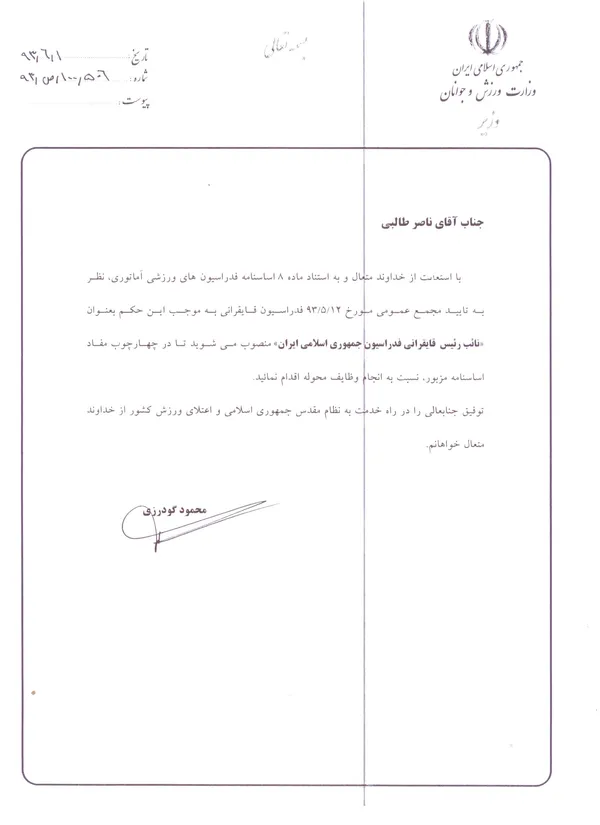 بسمه تعالی
جمهوری اسلامی ایران
وزارت ورزش و جوانان
وزیر
تاریخ: ۹۳/۶/۱
شماره: ۹۳/ص/۱۰۰/۵۰۶
پیوست:
جناب آقای ناصر طالبی
با استعانت از خداوند متعال و به استناد ماده ۸ اساسنامه فدراسیون های ورزشی آماتوری، نظر
به تایید مجمع عمومی مورخ ۹۳/۵/۱۲ فدراسیون قایقرانی به موجب این حکم بعنوان
«نائب رئیس قایقرانی فدراسیون جمهوری اسلامی ایران» منصوب می شوید تا در چهارچوب مفاد
اساسنامه مزبور، نسبت به انجام وظایف محوله اقدام نمائید.
توفیق جنابعالی را در راه خدمت به نظام مقدس جمهوری اسلامی و اعتلای ورزش کشور از خداوند
متعال خواهانم.
محمود گودرزی